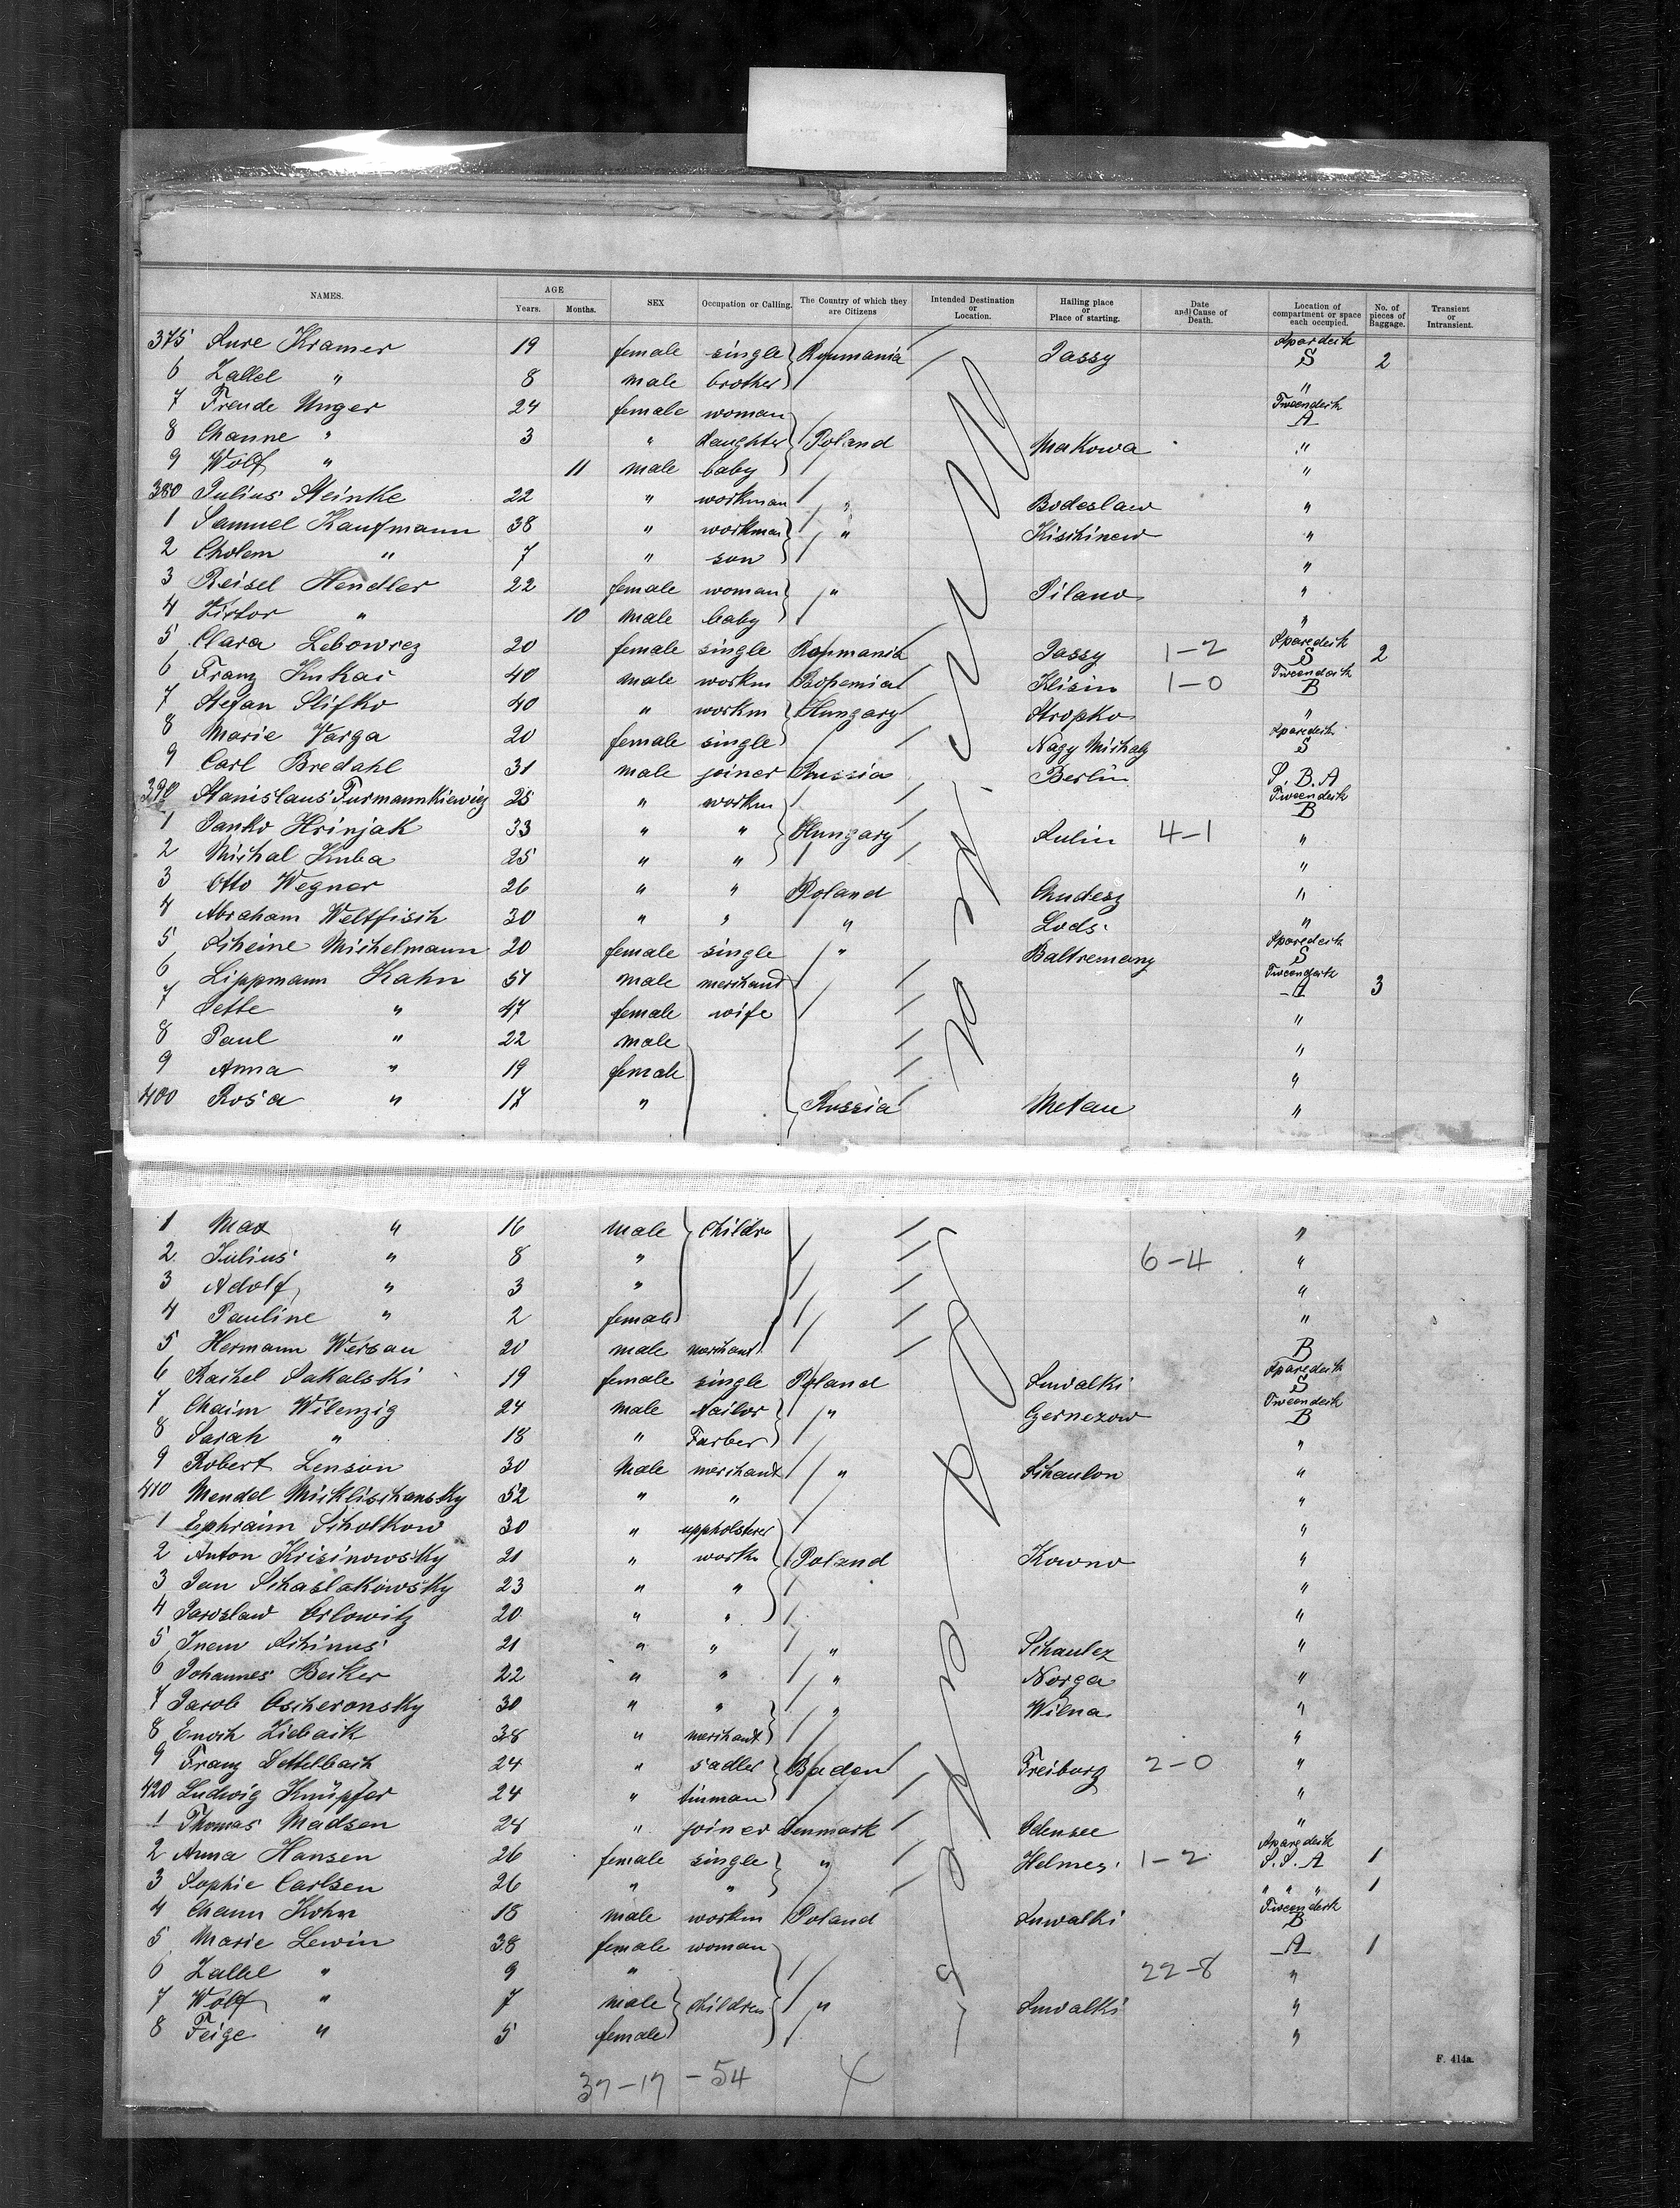 NAMES. AGE SEX Occupation or Calling. The Country of which they are Citizens Intended Destination or Location. Hailing place or Place of starting. Date and Cause of Death. Location of compartment or space each occupied. No. of pieces of Baggage. Transient or Intransient.
Years. Months.
375 Kramer 19 female single Roumania Jassy Sparedeck S 2
6 Zallel " 8 male brother "
7 Freude Unger 24 female woman Tweendeck A
8 Channe " 3 " daughter Poland Makowa "
9 Wolf " 11 male baby "
380 Julius Steinke 22 " workman " Bodeslaw "
1 Samuel Kaufmann 38 " workman " Kischinew "
2 Cholem " 7 " son "
3 Reisel Hendler 22 female woman " Pilano "
4 Victor " 10 male baby "
5 Clara Lebowicz 20 female single Roumania Jassy 1-2 Sparedeck S 2
6 Franz Kukai 40 male workm Bohemia Klisin 1-0 Tweendeck B
7 Stefan Slifko 40 " workm Hungary Stropko "
8 Marie Varga 20 female single Nagy Michaly Sparedeck S
9 Carl Bredahl 31 male joiner Prussia Berlin S. B. A
390 Stanislaus Furmannkiewicz 25 " workm Tweendeck B
1 Janko Hrinjak 33 " " Hungary Lulin 4-1 "
2 Michal Kuba 25 " " "
3 Otto Wegner 26 " " Poland Chudesz "
4 Abraham Weltfisch 30 " " " Lods "
5 Scheine Michelmann 20 female single " Baltremany Sparedeck S
6 Lippmann Kahn 51 male merchand Tweendeck A 3
7 Jette " 47 female wife "
8 Paul " 22 male "
9 Anna " 19 female "
400 Rosa " 17 " Russia Metau "
1 Max " 16 male childrn "
2 Julius " 8 " 6-4 "
3 Adolf " 3 " "
4 Pauline " 2 female "
5 Hermann Wersau 20 male merchant B
6 Rachel Sakalski 19 female single Poland Suwalki Sparedeck S
7 Chaim Wilenzig 24 male Nailor " Czernezow Tweendeck B
8 Sarah " 18 " Farber "
9 Robert Lenson 30 Male merchant " Schaulon "
410 Mendel Micklischansky 52 " " "
1 Ephraim Scholkow 30 " uppholsterer "
2 Anton Krisinowsky 21 " workm Poland Kowno "
3 Jan Schaslakowsky 23 " " "
4 Jaroslaw Orlowitz 20 " " "
5 Schinus 21 " " " Schaulez "
6 Johannes Becker 22 " " " Norga "
7 Jacob Oscheronsky 30 " " " Wilna "
8 Enoch Liebaik 38 " merchant "
9 Franz Dettelbach 24 " sadler Baden Freiburg 2-0 "
420 Ludwig Knüpfer 24 " tinman "
1 Thomas Madsen 28 " joiner Denmark Odensee "
2 Anna Hansen 26 female single " Helmes 1-2 Sparedeck S. S. A 1
3 Sophie Carlsen 26 " " " " " 1
4 Chann Kohn 18 male workm Poland Suwalki Tweendeck B
5 Marie Lewin 38 female woman A 1
6 Zallel " 9 " 22-8 "
7 Wolf " 7 male children " Suwalki "
8 Feige " 5 female "
37-17-54
F. 414a.